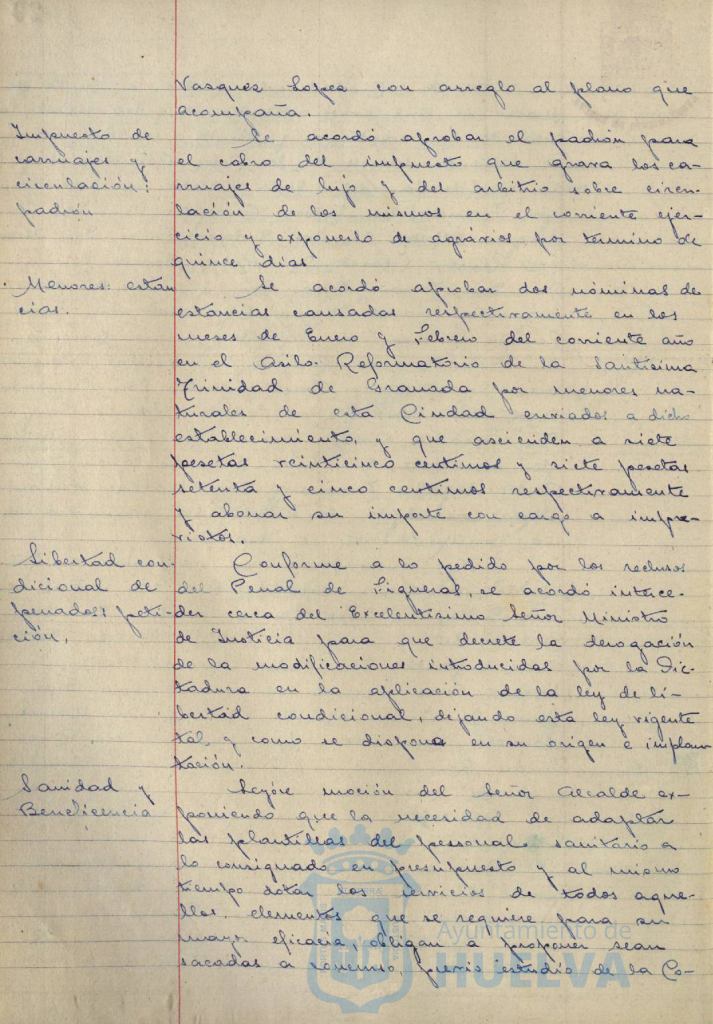 Vasquez Lopez con arreglo al plano que
acompaña.
Impuesto de
carruajes y
circulación:
padrón
Se acordó aprobar el padrón para
el cobro del impuesto que grava los ca-
rruajes de lujo y del arbitrio sobre circu-
lación de los mismos en el corriente ejer-
cicio y exponerlo de agrávios por termino de
quince dias
Menores: están
cias.
Se acordó aprobar dos nóminas de
estancias causadas respectivamente en los
meses de Enero y Febrero del corriente año
en el Asilo Reformatorio de la Santísima
Trinidad de Granada por menores na-
turales de esta Ciudad enviados a dicho
establecimiento, y que ascienden a siete
pesetas veinticinco centimos y siete pesetas
setenta y cinco centimos respectivamente
y abonar su importe con cargo a impre-
vistos.
Libertad con-
dicional de
penados: peti-
ción.
Conforme a lo pedido por los reclusos
del Penal de Figueras, se acordó interce-
der cerca del Excelentísimo Señor Ministro
de Justicia para que decrete la derogación
de la modificaciones introducidas por la Dic-
tadura en la aplicación de la ley de li-
bertad condicional, dejando esta ley vigente
tal y como se dispona en su origen e implan
tación.
Sanidad y
Beneficencia
Leyóse moción del Señor Alcalde ex-
poniendo que la necesidad de adaptar
las plantillas del personal sanitario a
lo consignado en presupuesto y al mismo
tiempo dotar los servicios de todos aque-
llos elementos que se requiere para su
mayor eficacia, obligan a proponer sean
sacadas a concurso, previo estudio de la Co-
Ayuntamiento de
HUELVA